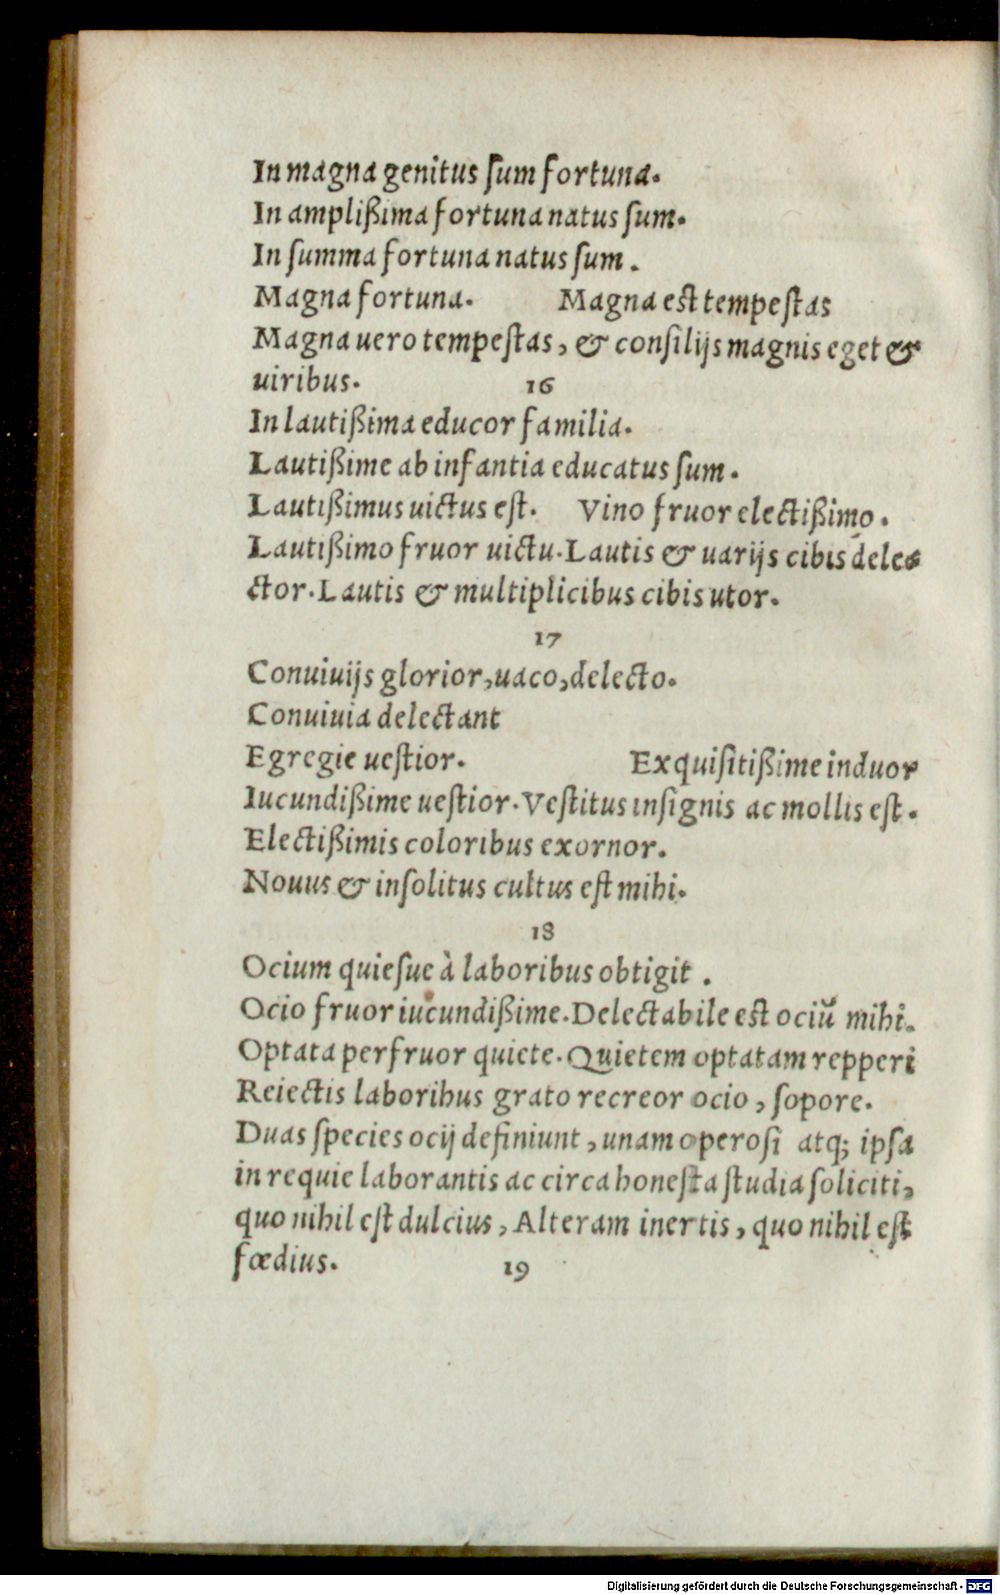 In magna genitus ſum fortuna.
In ampliſſima fortuna natus ſum.
In ſumma fortuna natus ſum.
Magna fortuna. Magna eſt tempeſtas
Magna uero tempeſtas, & conſilijs magnis eget &
uiribus. 16
In lautiſſima educor familia.
Lautiſſime ab infantia educatus ſum.
Lautiſſimus uictus eſt. Vino fruor electiſſimo.
Lautiſſimo fruor uictu. Lautis & uarijs cibis dele-
ctor. Lautis & multiplicibus cibis utor.
17
Conuiuijs glorior, uaco, delecto.
Conuiuia delectant
Egregie ueſtior. Exquiſitiſſime induor
Iucundiſſime ueſtior. Veſtitus inſignis ac mollis eſt.
Electiſſimis coloribus exornor.
Nouus & inſolitus cultus eſt mihi.
18
Ocium quieſue à laboribus obtigit.
Ocio fruor iucundiſſime. Delectabile eſt ociũ mihi.
Optata perfruor quiete. Quietem optatam repperi
Reiectis laboribus grato recreor ocio, ſopore.
Duas ſpecies ocij definiunt, unam operoſi atq; ipſa
in requie laborantis ac circa honeſta ſtudia ſoliciti,
quo nihil eſt dulcius, Alteram inertis, quo nihil eſt
fœdius. 19
Digitalisierung gefördert durch die Deutsche Forschungsgemeinschaft - DFG